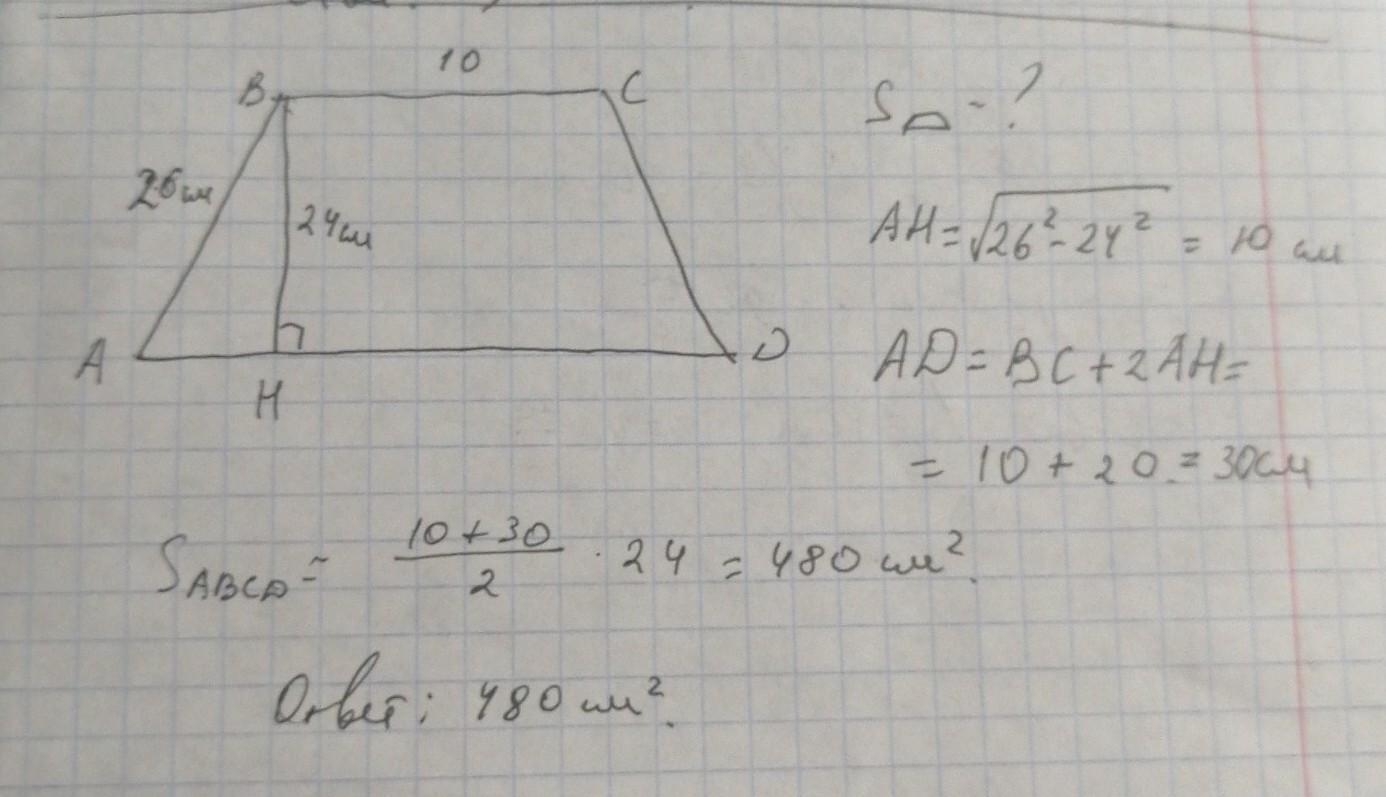 10
B C
S⏢ - ?
26см
24см
AH = √26² - 24² = 10 см
A H D
AD = BC + 2AH =
= 10 + 20 = 30см
S ABCD = (10 + 30)/2 · 24 = 480 см².
Ответ: 480 см².